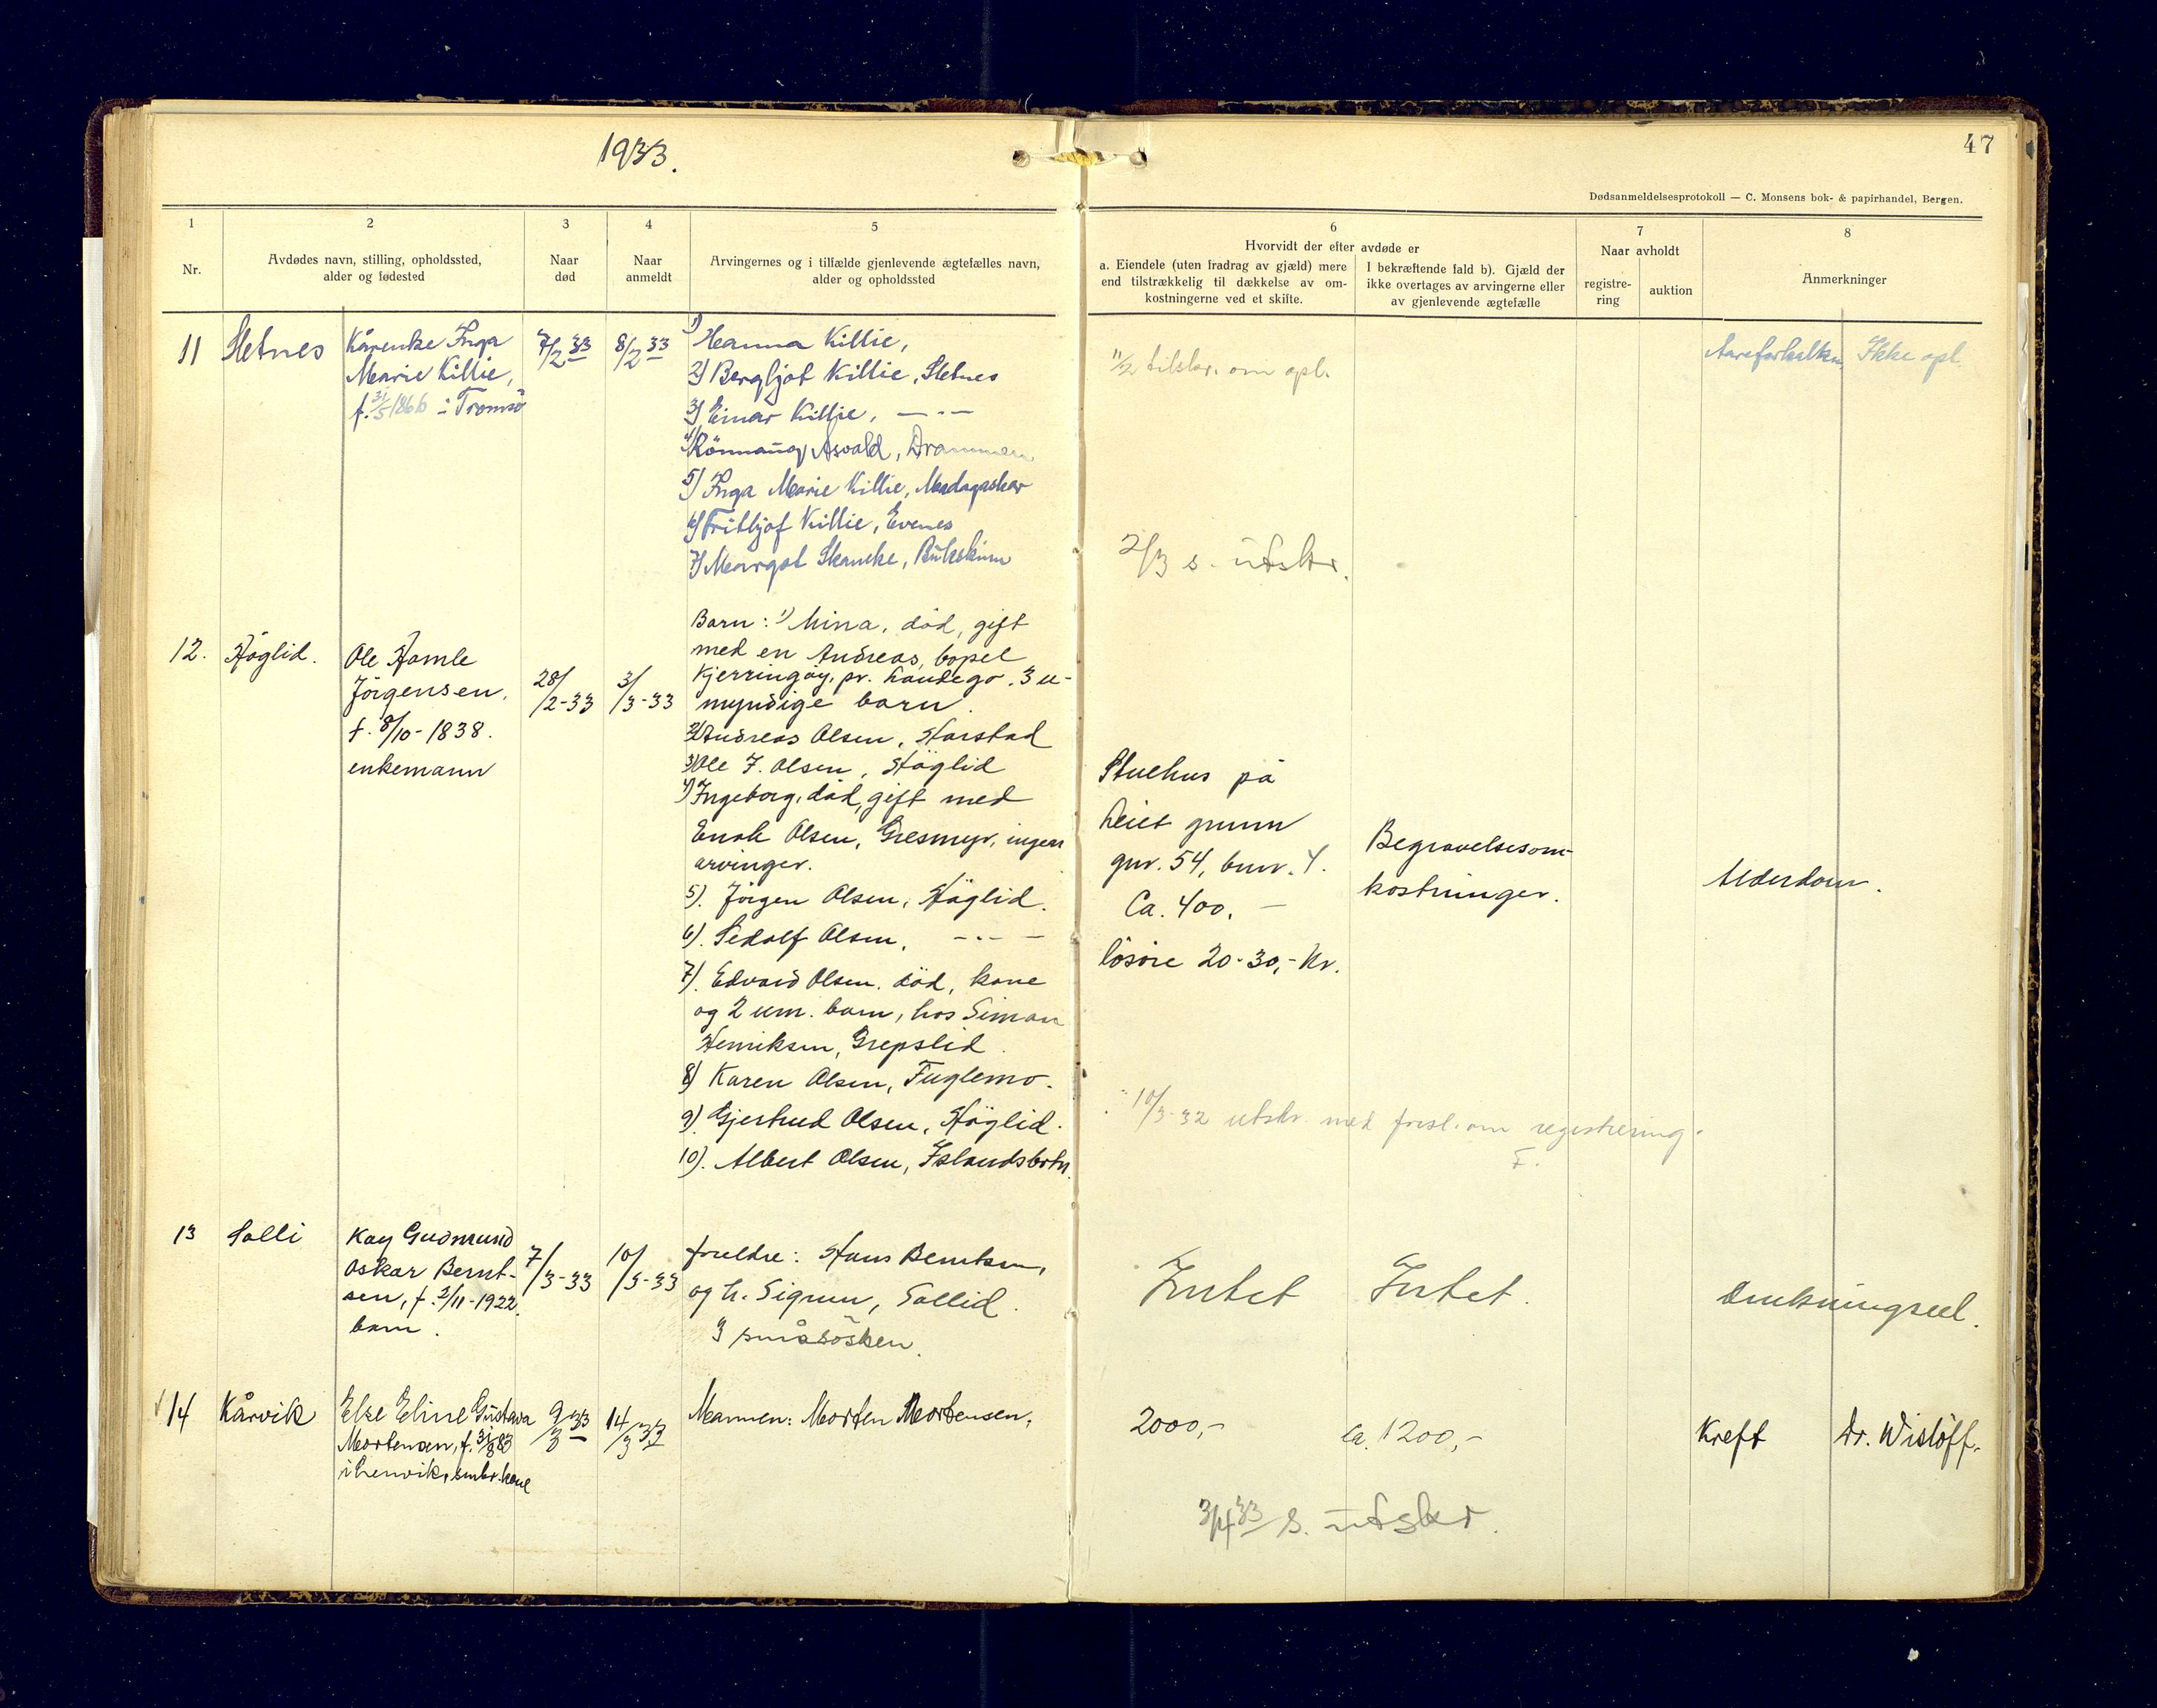 1933.
47
Dødsanmeldelsesprotokoll — C. Monsens bok- & papirhandel, Bergen.
1
Nr.
2
Avdødes navn, stilling, opholdssted,
alder og fødested
3
Naar
død
4
Naar
anmeldt
5
Arvingernes og i tilfælde gjenlevende ægtefælles navn,
alder og opholdssted
6
Hvorvidt der efter avdøde er
a. Eiendele (uten fradrag av gjæld) mere
end tilstrækkelig til dækkelse av om-
kostningerne ved et skifte.
I bekræftende fald b). Gjæld der
ikke overtages av arvingerne eller
av gjenlevende ægtefælle
7
Naar avholdt
registre-
ring
auktion
8
Anmerkninger
11
Sletnes
Kårenke Inga
Marie Killie,
f. 31/5 1866 i Tromsö
7/2 33
8/2 33
1) Hanna Killie,
2) Bergljot Killie, Sletnes
3) Einar Killie, — " —
4) Rönnaug Asvald, Drammen
5) Inga Marie Killie, Madagaskar
6) Fritbjof Killie, Evenes
7) Margot Skancke, Bukskinn
11/2 tilskr. om opl.
2/3 s. utskr.
Aareforkalkn.
Ikke opl.
12.
Höglid.
Ole Hamle
Jörgensen,
f. 8/10 - 1838.
enkemann
28/2-33
3/3-33
Barn: 1) Mina, död, gift
med en Andreas, bopel
Kjerringöy, pr. Landego. 3 u-
myndige barn.
2) Andreas Olsen, Harstad
3) Ole J. Olsen, Höglid
4) Ingeborg, död, gift med
Enok Olsen, Gresmyr, ingen
arvinger.
5). Jörgen Olsen, Höglid.
6). Sedolf Olsen, — " —
7). Edvard Olsen, död, kone
og 2 um. barn, hos Simon
Henriksen, Grepslid.
8) Karen Olsen, Fuglemo.
9). Gjertrud Olsen, Höglid.
10). Albert Olsen, Islandsbotn.
Stuehus på
leiet grunn
gnr. 54, bnr. 4.
Ca. 400. —
lösöre 20-30,- Kr.
Begravelsesom-
kostninger.
Alderdom.
10/3-32 utskr. med forsl. om registrering.
F.
13
Solli
Kay Gudmund
Oskar Bernt-
sen, f. 2/11-1922.
barn.
7/3-33
10/3-33
foreldre: Hans Berntsen,
og h. Sigrun, Sollid.
3 småsösken.
Intet
Intet.
Drukningsul.
14
Kårvik
Else Eline Gustava
Mortensen, f. 31/8 83
i Lenvik, smbr. kone
9/3 33
14/3 33
Mannen: Morten Mortensen,
2000,-
ca. 1200,-
Kreft
Dr. Wislöff.
3/4 33 s. utskr.